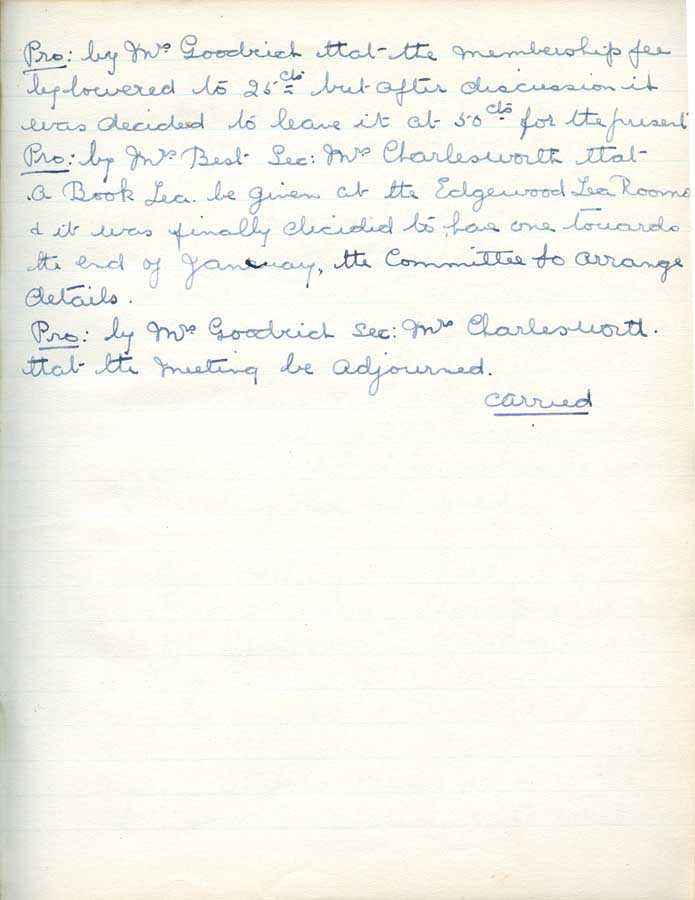 Pro: by Mrs Goodrich that the membership fee
by lowered to 25 cts but after discussion it
was decided to leave it at 50 cts for the present
Pro: by Mrs Best Sec: Mrs Charlesworth that
A Book Tea. be given at the Edgewood Tea Rooms
& it was finally decided to hae one towards
the end of January, the Committee to arrange
details.
Pro: by Mrs Goodrich Sec: Mrs Charlesworth.
that the meeting be adjourned.
Carried